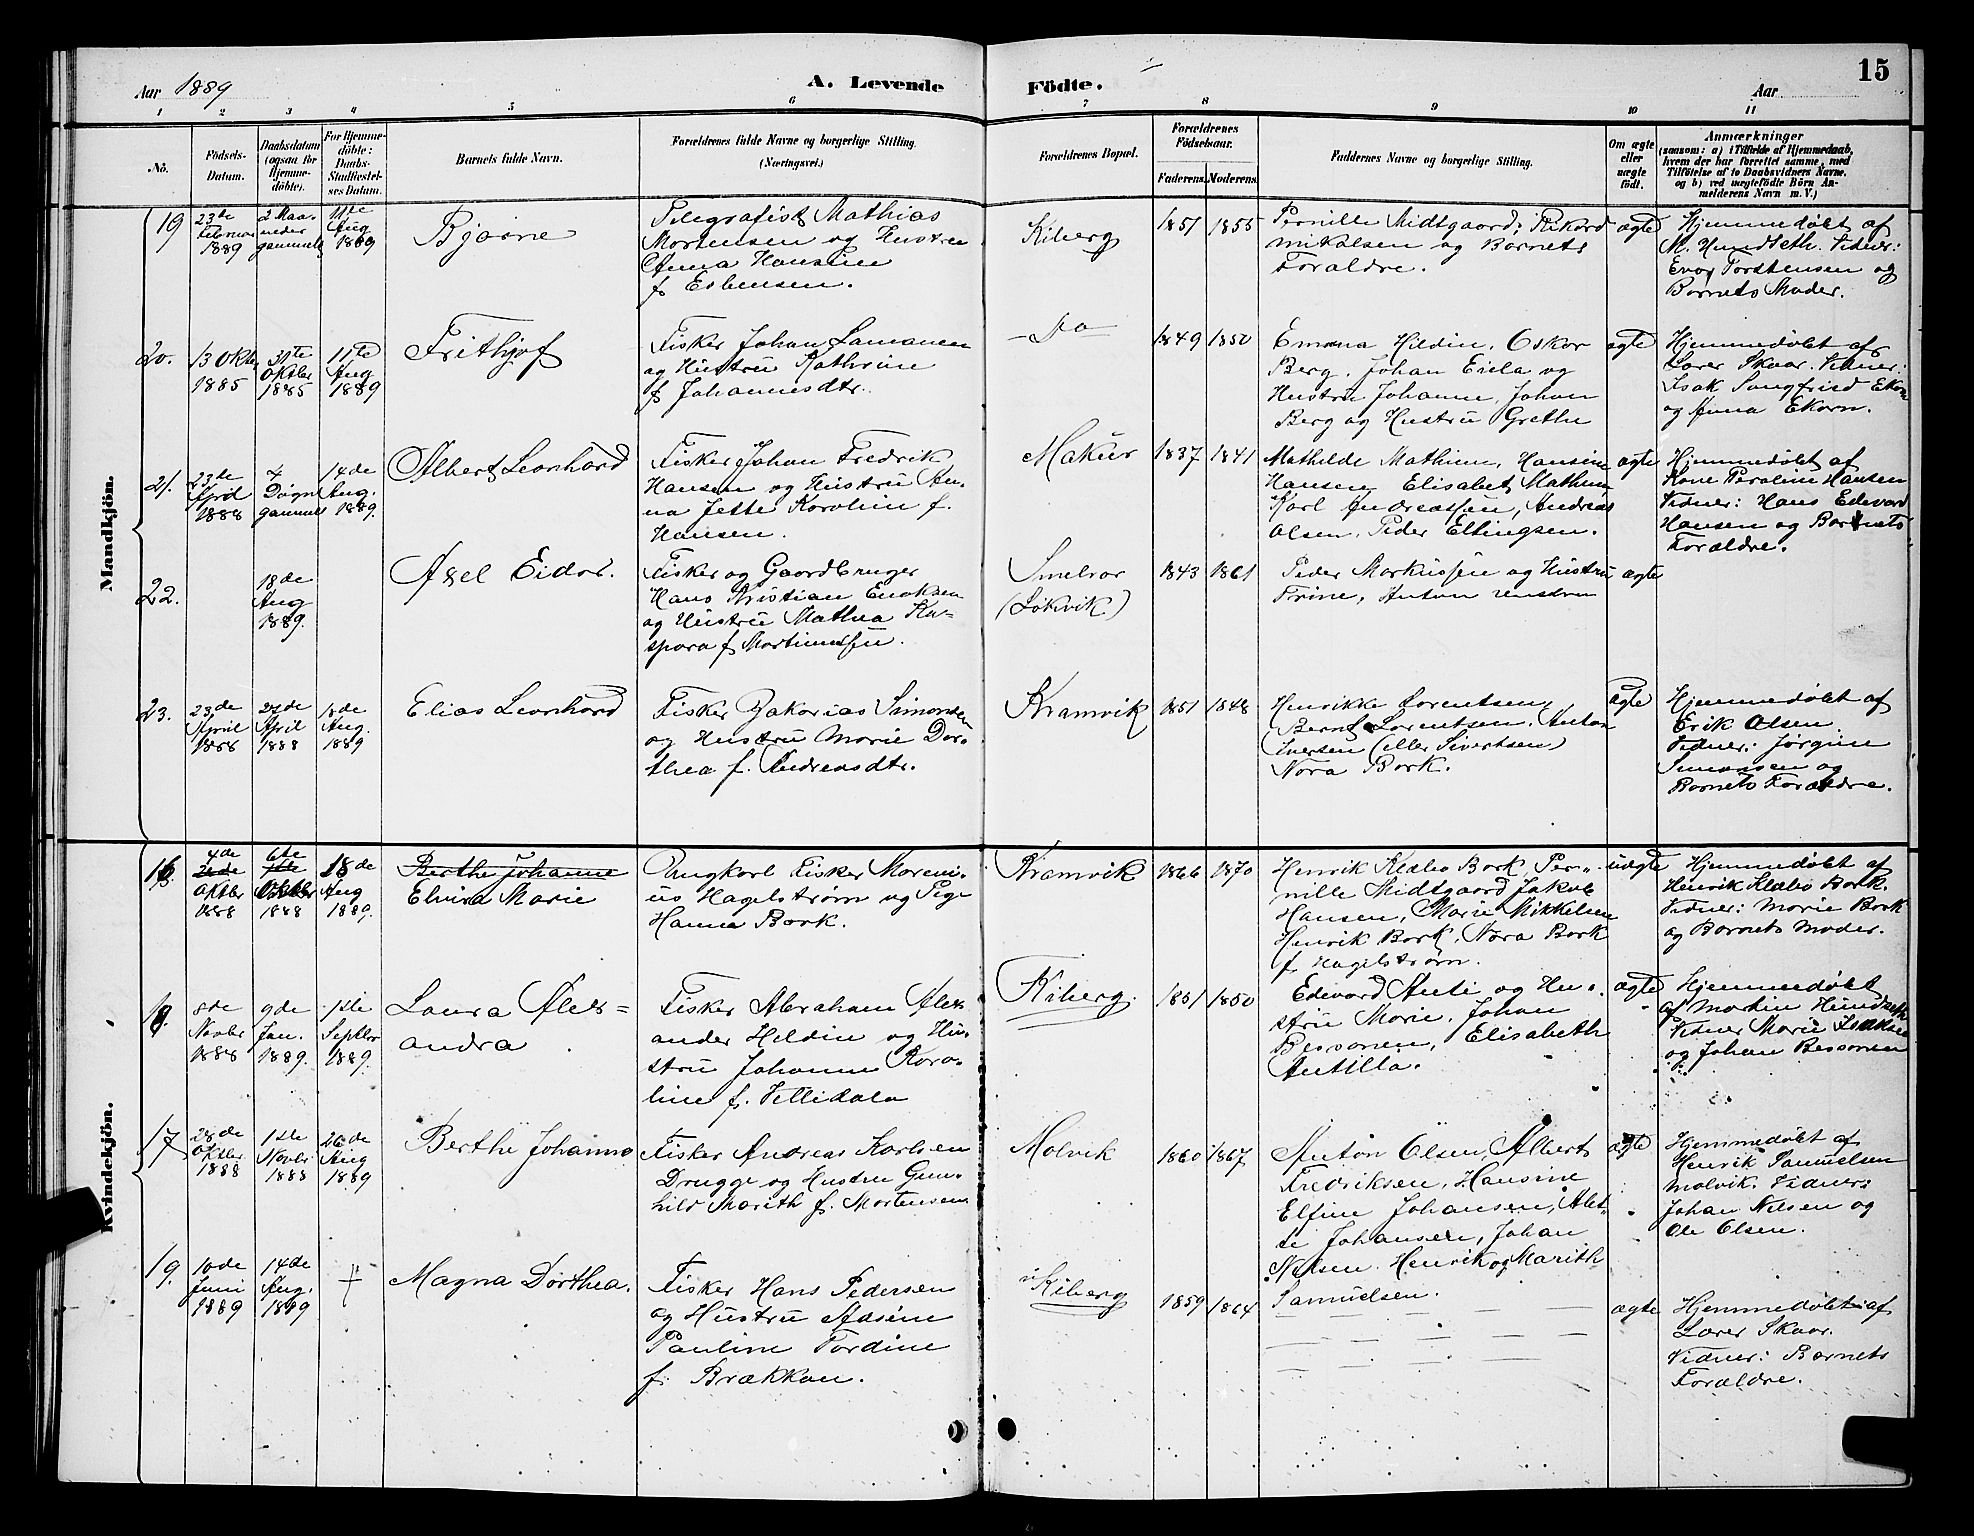 Aar 1889
A. Levende
Födte.
15
Aar
1 2 3 4 5 6 7 8 9 10 11
No.
Födsels-
Datum.
Daabsdatum
(ogsaa for
Hjemme-
döbte).
For Hjemme-
döbte:
Daabs-
Stadfæstel-
ses Datum.
Barnets fulde Navn.
Forældrenes fulde Navne og borgerlige Stilling.
(Næringsvei.)
Forældrenes Bopæl.
Forældrenes
Födselsaar.
Faderens. Moderens.
Faddernes Navne og borgerlige Stilling.
Om ægte
eller
uægte
födt.
Anmærkninger
(saasom: a) i Tilfælde af Hjemmedaab,
hvem der har forrettet samme, med
Tilföielse af to Daabsvidners Navne,
og b) ved uægtefödte Börn An-
melderens Navn m. V.)
Mandkjön.
19
23de
Februar
1889
2 Maa-
neder
gammel
11te
Aug
1889
Bjarne
Telegrafist Mathias
Mortensen og Hustru
Anna Hansine
f. Esbensen.
Kiberg
1851
1855
Pernille Midtgaard, Rikard
Mikalsen og Barnets
Forældre.
ægte
Hjemmedøbt af
M. Hundseth. Vidner:
Torstensen og
Barnets Moder.
20.
13 Oktbr
1885
31te
Oktbr
1885
11te
Aug
1889
Frithjof
Fisker Johan Lamanen
og Hustru Kathrine
f. Johannesdtr.
Do
1849
1850
Emma Hildin, Oskar
Berg, Johan Eiela og
Hustru Johanne, Johan
Berg og Hustru Grethe
ægte
Hjemmedøbt af
Lærer Skaar. Vidner:
Isak Ekorn
og Anna Ekorn.
21.
23de
April
1888
7
Døgn
gammel
14de
Aug.
1889.
Albert Leonhard
Fisker Johan Fredrik
Hansen og Hustru An-
na Jette Karoline f.
Hansen.
Makur
1837
1841
Mathilde Mathisen, Hansine
Hansen Elisabet Mathisen
Karl Andreassen, Andreas
Olsen, Peder Ellingsen.
ægte
Hjemmedøbt af
Kone Peroline Hansen
Vidner: Hans Edevard
Hansen og Barnets
Forældre.
22.
18de
Aug
1889.
Axel Eidor.
Fisker og Gaardbruger
Hans Kristian Enoksen
og Hustru Mathea Ka-
spara f. Mortinussen.
Smelror
(Løkvik)
1843
1861
Peder Markussen og Hustru
Trine, Anton
ægte
23.
23de
April
1888
27de
April
1888
18de
Aug.
1889
Elias Leonhard
Fisker Zakarias Simonsen
og Hustru Marie Doro-
thea f. Andreasdtr.
Kramvik
1851
1848
Henrikke Lorentsen,
Bernt Lorentsen, Anton
Iversen (eller Sivertsen)
Nora Bork.
ægte
Hjemmedøbt af
Erik Olsen
Vidner: Jørgine
Simonsen og
Barnets Forældre.
Kvindekjön.
16.
4de
Oktbr
1888
6te
Oktbr
1888
18de
Aug
1889.
Berthe Johanne
Elvira Marie
Ungkarl Fisker Moreni-
us Hagelstrøm og Pige
Hanna Bork.
Kramvik
1866
1870
Henrik Klæbo Bork, Per-
nille Midtgaard Jakob
Hansen, Marie Mikkelsen
Henrik Bork, Nora Bork
f. Hagelstrøm.
uægte
Hjemmedøbt af
Henrik Klæbo Bork.
Vidner: Marie Bork
og Barnets Moder.
18.
8de
Novbr
1888
9de
Jan.
1889.
1ste
Septbr
1889.
Laura Alex=
andra
Fisker Abraham Alex
ander Heldin og Hu-
stru Johanne Karo-
line f. Vettidala
Kiberg.
1851
1850
Edevard Anti og Hu-
stru Marie, Johan
Bessonen, Elisabeth
Antilla.
ægte
Hjemmedøbt
af Martin Hundseth
Vidner Marie Isaksen
og Johan Bessonen
17
28de
Oktbr
1888
1ste
Novbr
1888
26de
Aug
1889
Berthe Johanna
Fisker Andreas Karlsen
Drugge og Hustru Gun-
hild Marith f. Mortensen
Molvik
1860
1867
Anton Olsen, Albert
Fredriksen, Hansine
Elfine Johansen, Alet-
te Johansen, Johan
Nilsen. Henrik og Marith
Samuelsen.
ægte
Hjemmedøbt af
Henrik Samuelsen
Molvik. Vidner:
Johan Nilsen og
Ole Olsen.
19.
10de
Juni
1889
14de
Aug.
1889
†
Magna Dorthea.
Fisker Hans Pedersen
og Hustru Adsine
Pauline Tordine
f. Brækkan.
Kiberg
1859
1864
ægte
Hjemmedøbt af
Lærer Skaar.
Vidner: Barnets
Forældre.